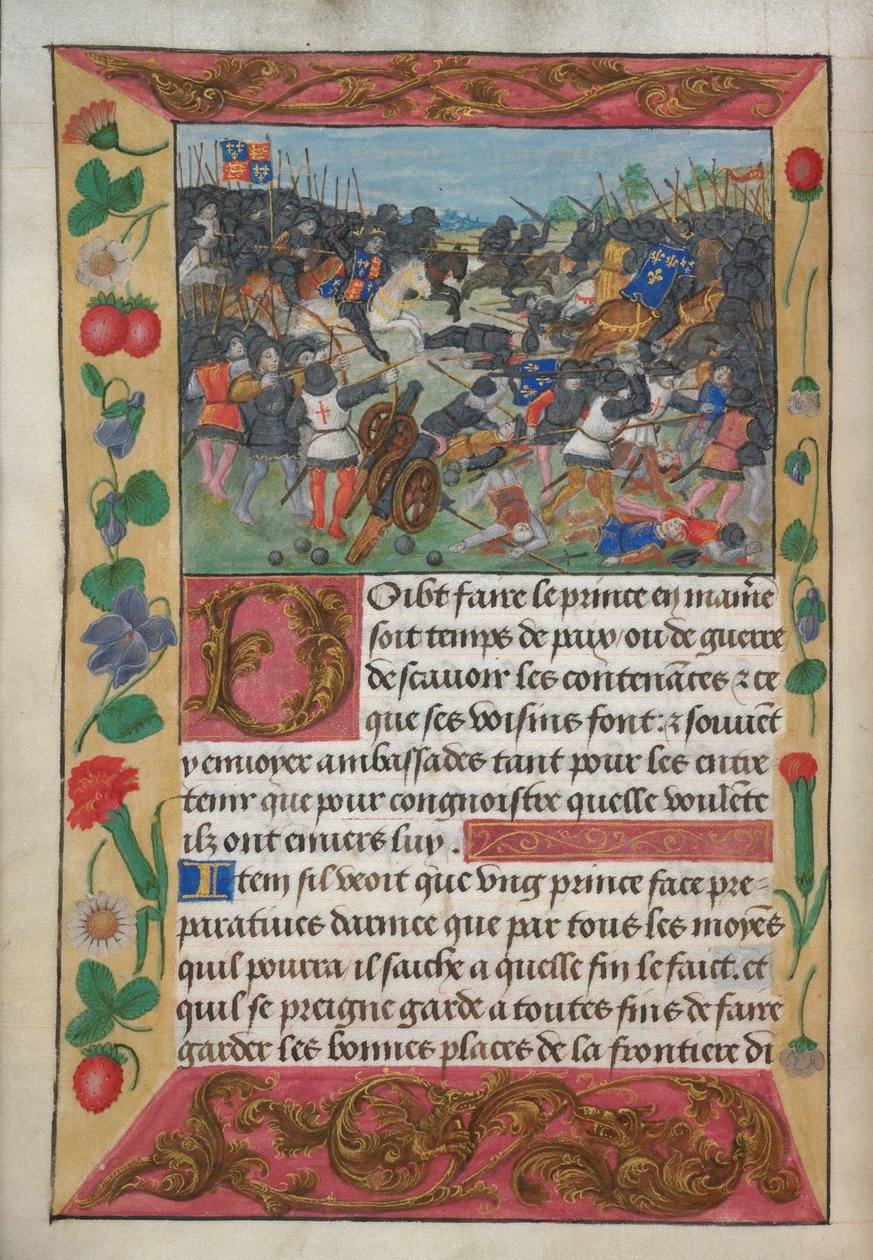 Doibt faire le prince en maniē
soit temps de paix / ou de guerre
de scauoir les contenāces & ce
que ses voisins font: & souuēt
y enuoyer ambassades tant pour les entre
tenir que pour congnoistre quelle voulēte
ilz ont enuers luy.
Item sil veoit que vng prince face pre-
paratiues darmee que par tous les moyēs
quil pourra / il saiche a quelle fin le faict. et
quil se preigne garde a toutes fins de faire
garder les bonnes places de la frontiere di